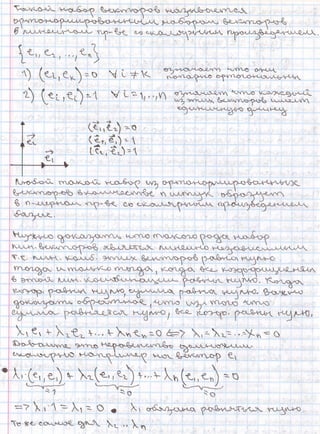 Такой набор векторов называется
ортонормированным набором векторов
в линейном пр-ве со скалярным произведением
{e₁, e₂, ..., eₖ}
1) (eᵢ, eₖ) = 0 ∀ i ≠ k означает что они
попарно ортогональны
2) (eᵢ, eᵢ) = 1 ∀ i = 1,..,n означает что каждый
из этих векторов имеет
единичную длину
(e⃗₁, e⃗₂) = 0
(e⃗₁, e⃗₁) = 1
(e⃗₂, e⃗₂) = 1
e⃗₂
e⃗₁
Любой такой набор из ортонормированных
векторов в количестве n штук образует
в n-мерном пр-ве со скалярным произведением
базис.
Нужно доказать что такого рода набор
лин. векторов является линейно независимым
т.е. лин. комб. этих векторов равна нулю
тогда и только тогда, когда все коэффициенты
в этой лин. комбинации равны нулю. Когда
коэф равны нулю сумма равна нулю. Важно
доказать обратное, что из того что
сумма равняется нулю, все коэф. равны нулю,
λ₁e₁ + λ₂e₂ + ... + λₙeₙ = 0 <=> λ₁ = λ₂ = ... λₙ = 0
Давайте это неравенство домножим
скалярно например на вектор e₁
λ₁(e₁, e₁) + λ₂(e₁, e₂) + ... + λₙ(e₁, eₙ) = 0
=1 =0 =0
=> λ₁·1 = λ₁ = 0 λ₁ обязана равняться нулю
То же самое для λ₂ .. λₙ